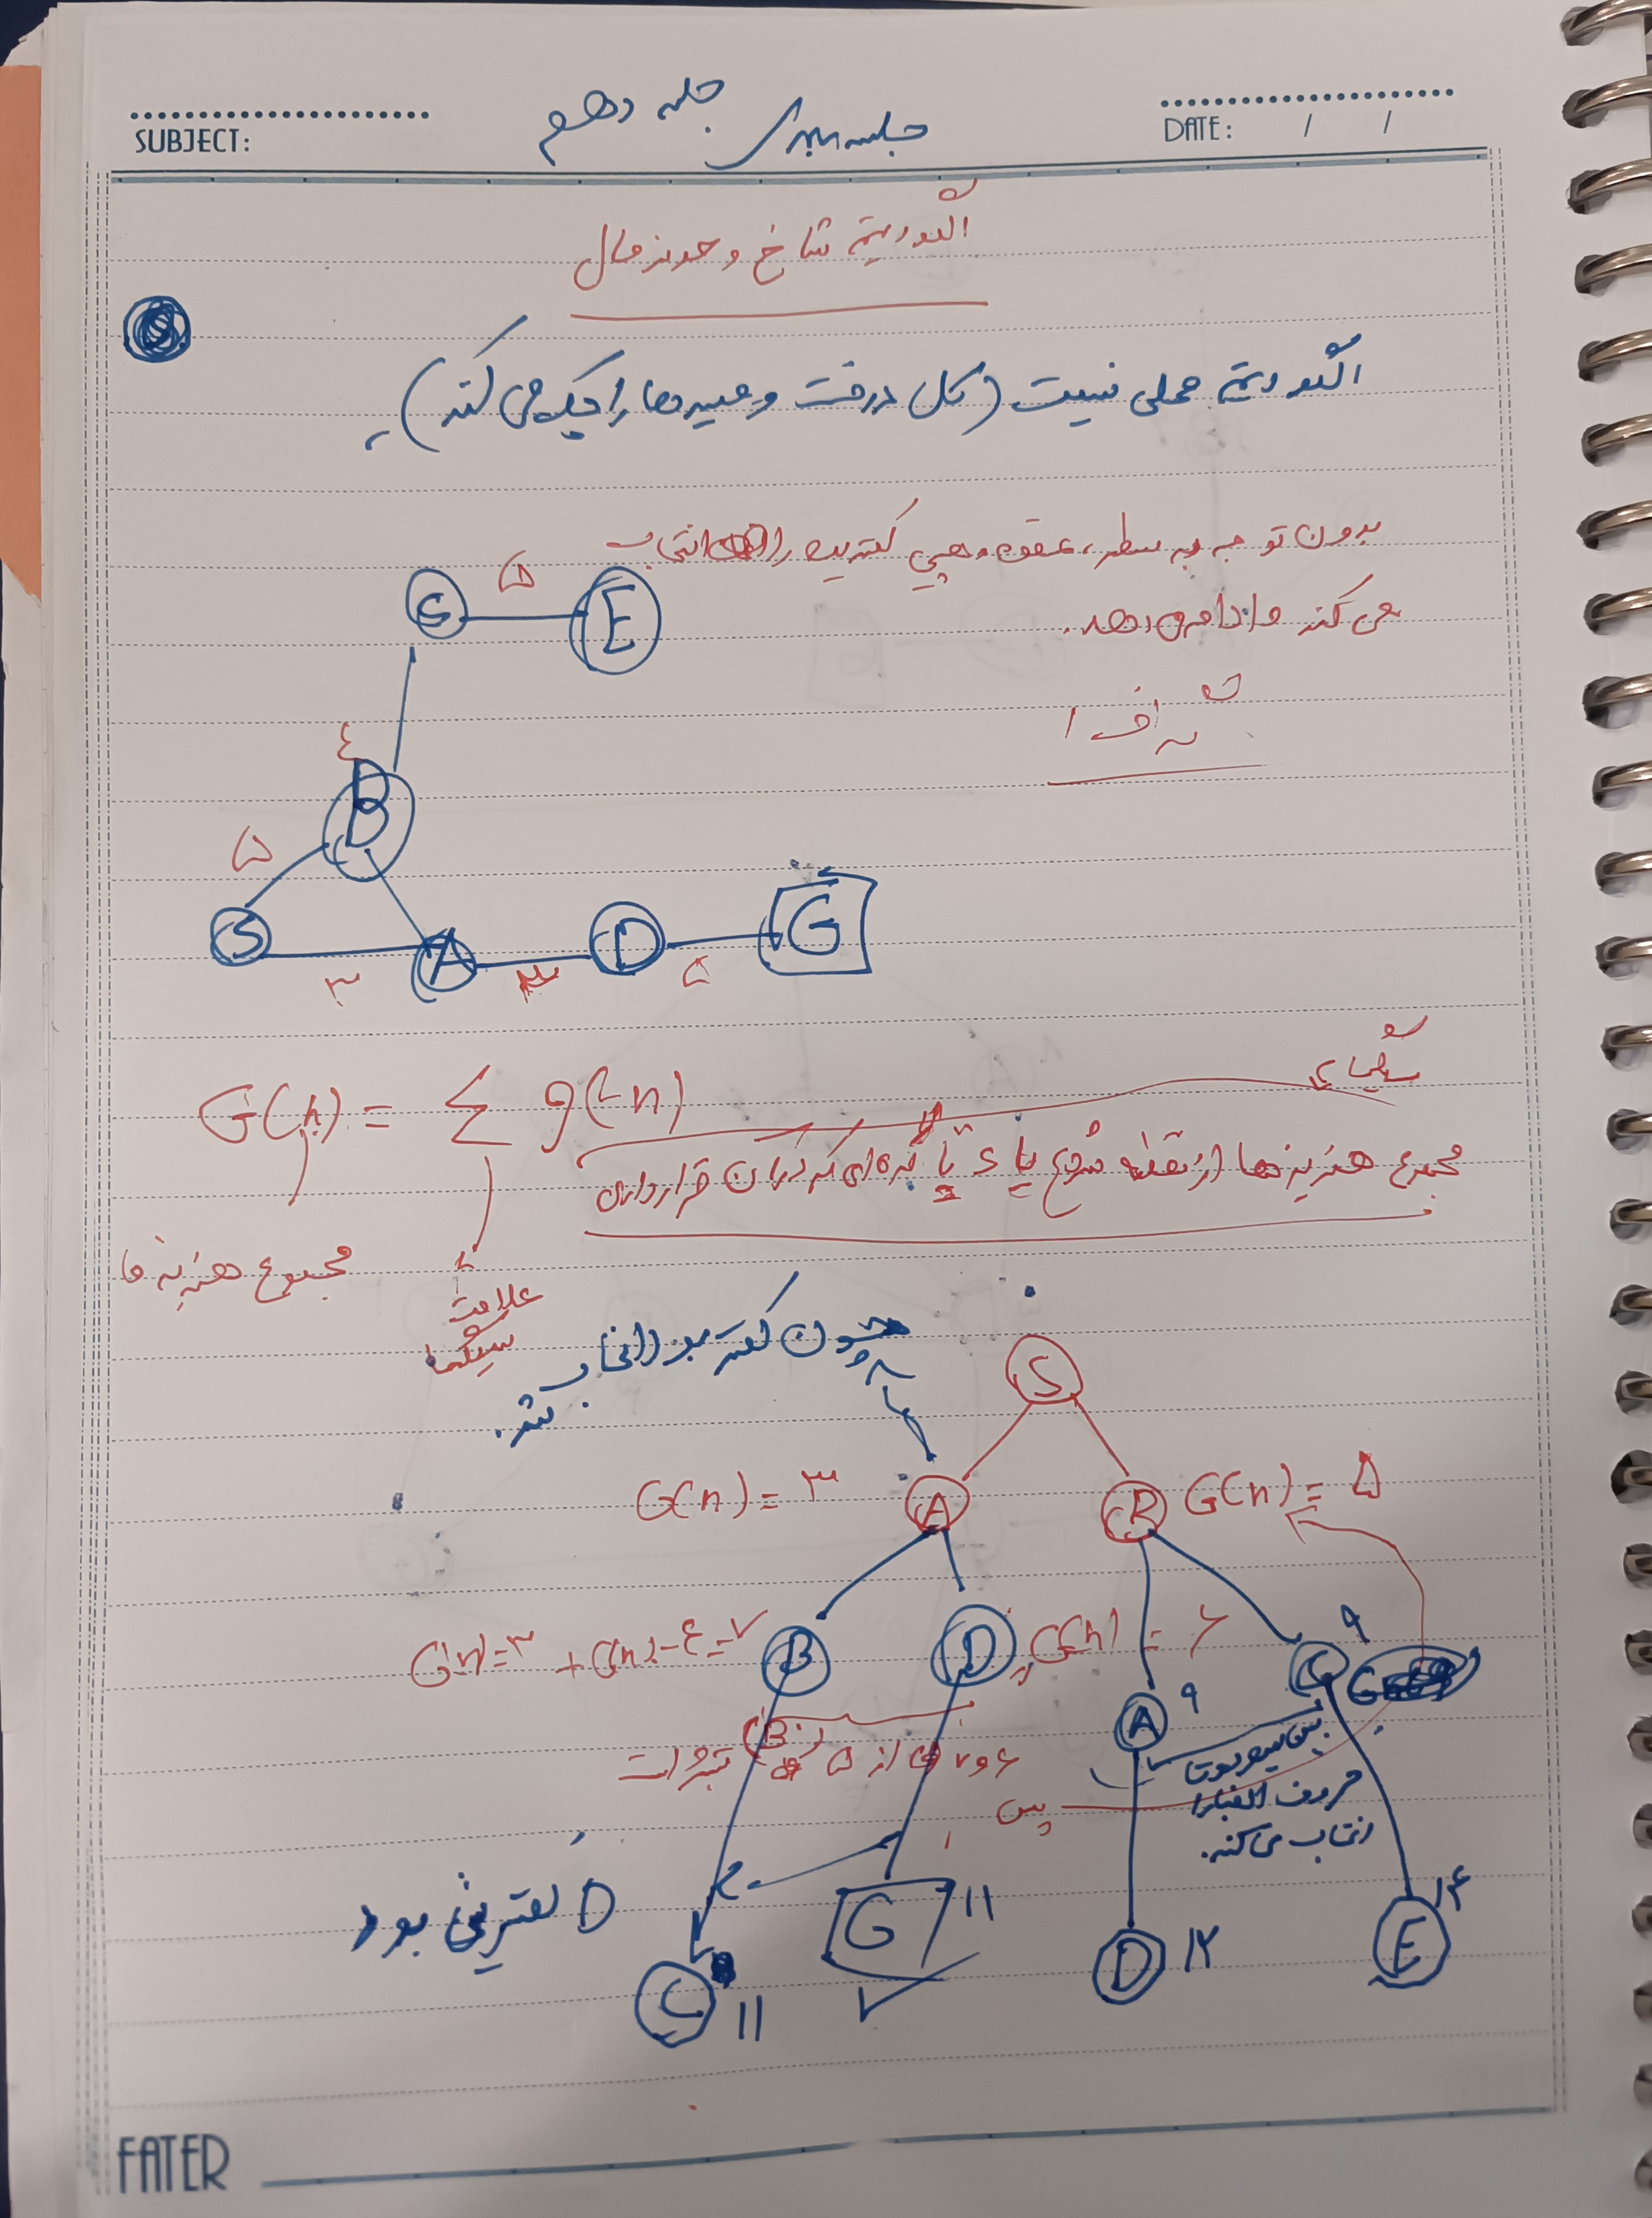 SUBJECT:
جلسه دهم
جلسه
DATE: / /
الگوریتم شاخ و حد نرمال
الگوریتم عملی نیست (کل درخت و مسیرها را چک می کند)
بدون توجه به سطر، کمترین را انتخاب
می کند و ادامه می دهد.
گراف ۱
C ۵ E
۴
B
۵
S ۳ A ۳ D ۵ G
G(n) = Σ g(n)
مجموع هزینه ها از نقطه شروع یا S تا گره ای که در آن قرار داری
مجموع هزینه ها
علامت
سیگما
چون کمتر بود انتخاب
شد.
S
G(n) = ۳ A B G(n) = ۵
G(n) = ۳ + G(n) = ۴ = ۷ B D G(n) = ۶
A ۹ C ۹
۶ و ۷ از ۵ (B) است
پس
بین
حروف الفبا را
انتخاب می کند.
D کمترین بود
C ۱۱ G ۱۱ D ۱۲ E ۱۴
FATER